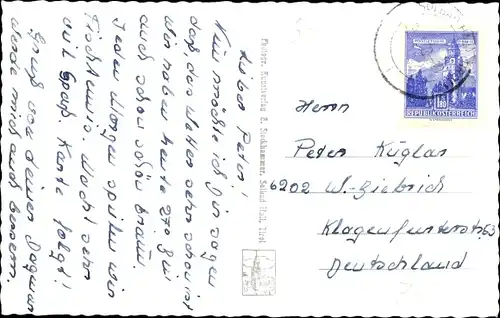 Lieber Peter!
Nun möchte ich Dir sagen
daß das Wetter sehr schön ist
Wir haben heute 27. Bin
auch schon schön braun.
Jeden Morgen spielen wir
Tischtennis. Macht sehr
viel Spaß. Karte folgt!
Gruß von deiner Dagmar
Werde mich auch bessern.
Kunstverlag Stockhammer, Hall, Tirol
REPUBLIK ÖSTERREICH
Herrn
Peter Küglar
6202 W.-Biebrich
Klagenfurterstr. 63
Deutschland